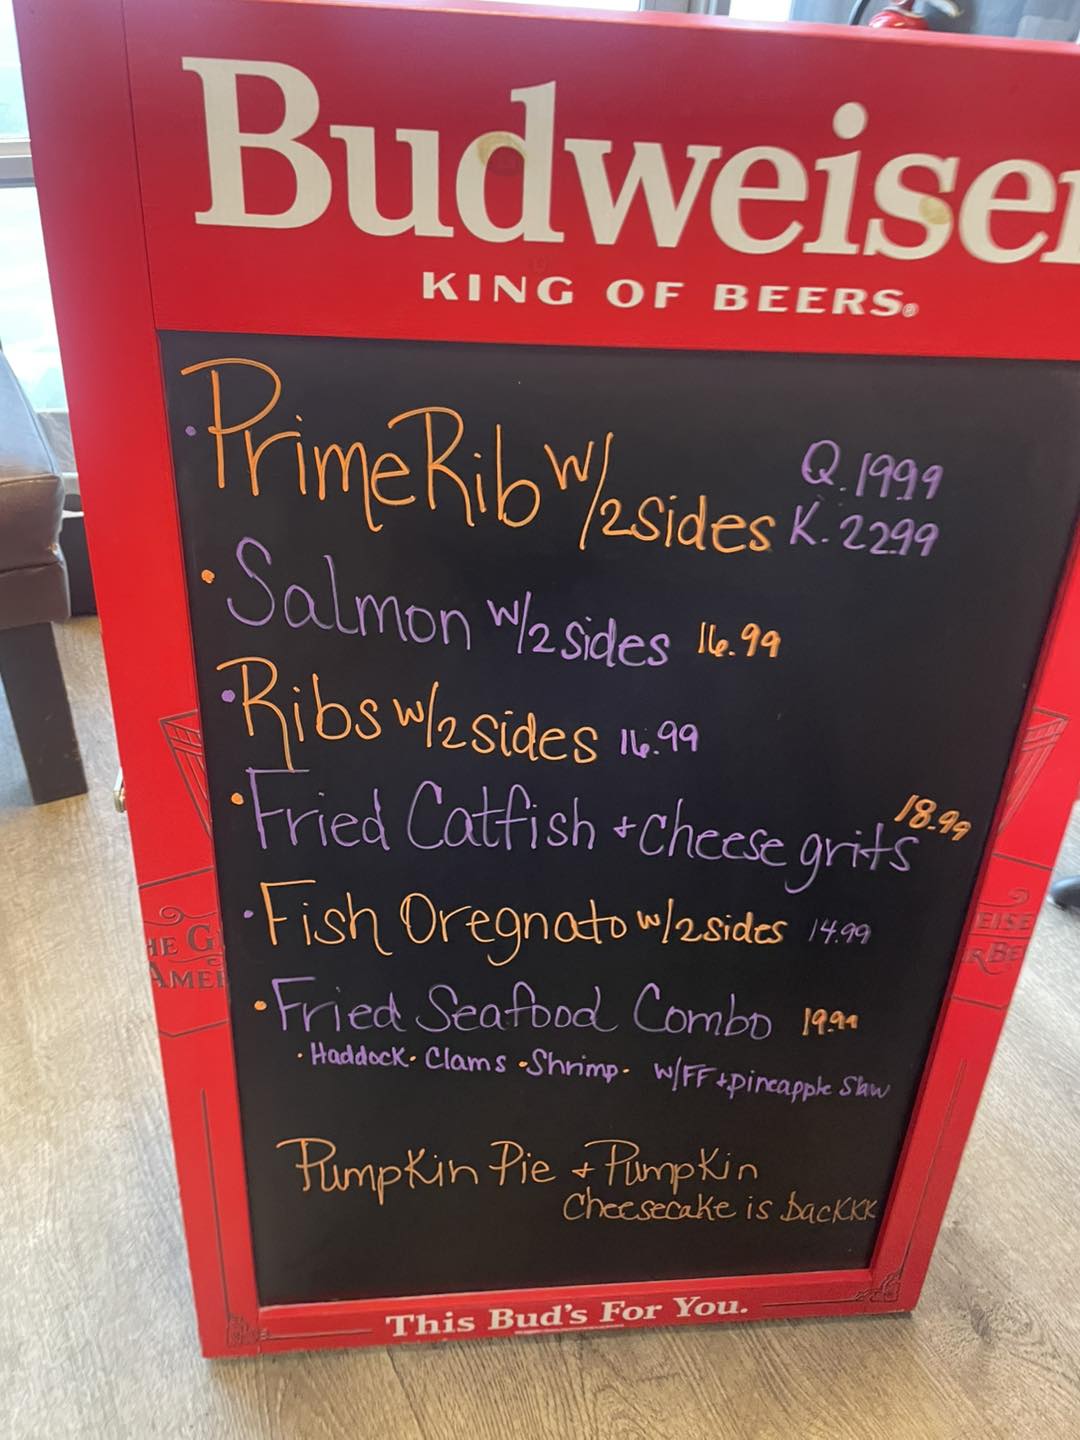 Budweiser
KING OF BEERS®
• Prime Rib w/2sides Q. 1999
K. 2299
• Salmon w/2 sides 16.99
• Ribs w/2 sides 16.99
• Fried Catfish + Cheese grits 18.99
• Fish Oregnato w/2sides 14.99
• Fried Seafood Combo 19.99
• Haddock • Clams • Shrimp • w/FF + pineapple Slaw
Pumpkin Pie + Pumpkin
Cheesecake is backkk
This Bud's For You.